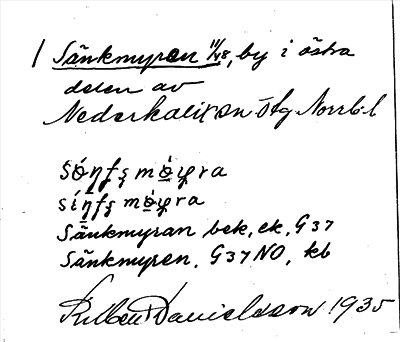 / Sänkmyren 11/48, by i östra
delen av
Nederkalix sn stg Norrb.l
Sänkmyran bek, ek, G 37
Sänkmyren, G 37 NO, kb
Ruben Danielsson 1935